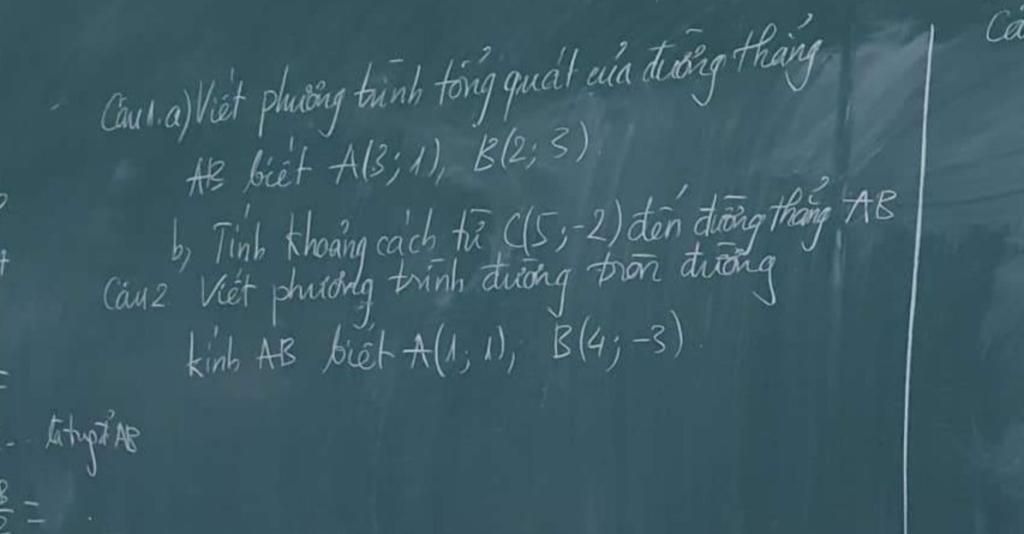 Câu 1. a) Viết phương trình tổng quát của đường thẳng
AB biết A(3; 1), B(2; 3)
b, Tính khoảng cách từ C(5; -2) đến đường thẳng AB
Câu 2 Viết phương trình đường tròn đường
kính AB biết A(1; 1), B(4; -3).
AB
=